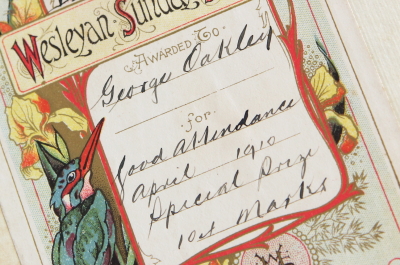 Wesleyan Sunday
Awarded To
George Oakley
for
Good Attendance
April 1910
Special Prize
104 Marks